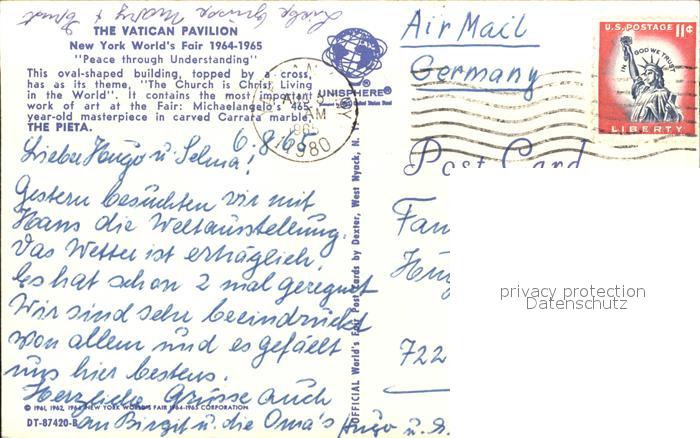 Liebe Grüsse
THE VATICAN PAVILION
New York World's Fair 1964-1965
"Peace through Understanding"
This oval-shaped building, topped by a cross,
has as its theme, "The Church is Christ Living
in the World". It contains the most important
work of art at the Fair: Michaelangelo's 465-
year-old masterpiece in carved Carrara marble,
THE PIETA.
UNISPHERE®
Air Mail
Germany
U.S. POSTAGE 11¢
IN GOD WE TRUST
LIBERTY
AM
1965
980
6.8.65
Lieber Hugo u. Selma!
Gestern besuchten wir mit
Hans die Weltausstellung.
Das Wetter ist erträglich.
Es hat schon 2 mal geregnet
Wir sind sehr beeindruckt
von allem und es gefällt
uns hier bestens.
Herzliche Grüsse auch
an Birgit u. die Oma's
© 1961, 1962, 1964 NEW YORK WORLD'S FAIR 1964-1965 CORPORATION
DT-87420-B
OFFICIAL World's Fair Post Cards by Dexter, West Nyack, N. Y.
Post Card
Fam
Hug
722
Hugo u. S.
privacy protection
Datenschutz